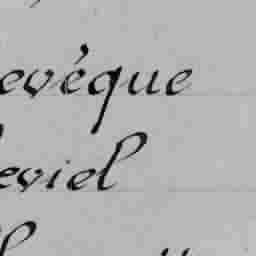 evéque
eviel